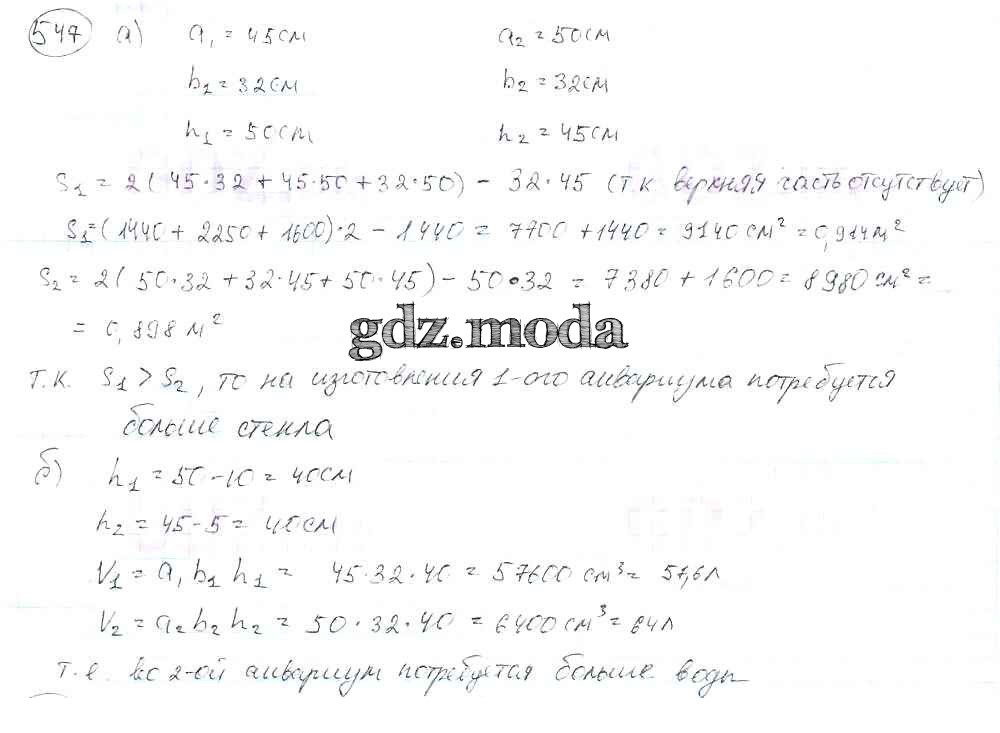 547 а) a₁ = 45см a₂ = 50см
b₁ = 32см b₂ = 32см
h₁ = 50см h₂ = 45см
S₁ = 2(45·32 + 45·50 + 32·50) - 32·45 (т.к верхняя часть отсутствует)
S₁=(1440 + 2250 + 1600)·2 - 1440 = 7700 + 1440 = 9140 см² = 0,914м²
S₂ = 2(50·32 + 32·45 + 50·45) - 50·32 = 7380 + 1600 = 8980см² =
= 0,898 м²
gdz.moda
т.к. S₁ > S₂, то на изготовления 1-ого аквариума потребуется
больше стекла
б) h₁ = 50-10 = 40см
h₂ = 45-5 = 40см
V₁ = a₁ b₁ h₁ = 45·32·40 = 57600 см³ = 57,6л
V₂ = a₂ b₂ h₂ = 50·32·40 = 6400см³ = 64л
т.е. во 2-ой аквариум потребуется больше воды